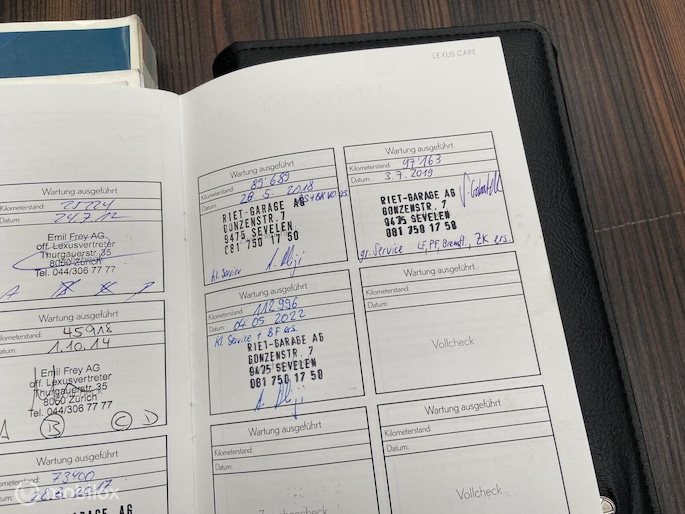 LEXUS CARE
Wartung ausgeführt
Kilometerstand:
Datum: 24.7.12
Emil Frey AG
off. Lexusvertreter
Thurgauerstr. 35
8050 Zürich
Tel. 044/306 77 77
Wartung ausgeführt
Kilometerstand: 45918
Datum: 1.10.14
Emil Frey AG
off. Lexusvertreter
Thurgauerstr 35
8050 Zürich
Tel. 044/306 77 77
B C D
Wartung ausgeführt
Kilometerstand: 73400
Datum: 2017
GARAGE AG
Wartung ausgeführt
Kilometerstand: 89 689
Datum: 28. 5. 2018
RIET-GARAGE AG
GONZENSTR. 7
9475 SEVELEN
081 750 17 50
kl. Service
Wartung ausgeführt
Kilometerstand: 112 996
Datum: 04. 05 2022
Kl Service + BF ers.
RIET-GARAGE AG
GONZENSTR. 7
9475 SEVELEN
081 750 17 50
Wartung ausgeführt
Kilometerstand:
Datum:
Wartung ausgeführt
Kilometerstand: 97 163
Datum: 3.7.2019
RIET-GARAGE AG
GONZENSTR. 7
9475 SEVELEN
081 750 17 50
gr. Service LF, PF, Bremsfl., ZK ers.
Wartung ausgeführt
Kilometerstand:
Datum:
Vollcheck
Wartung ausgeführt
Kilometerstand:
Datum:
Vollcheck